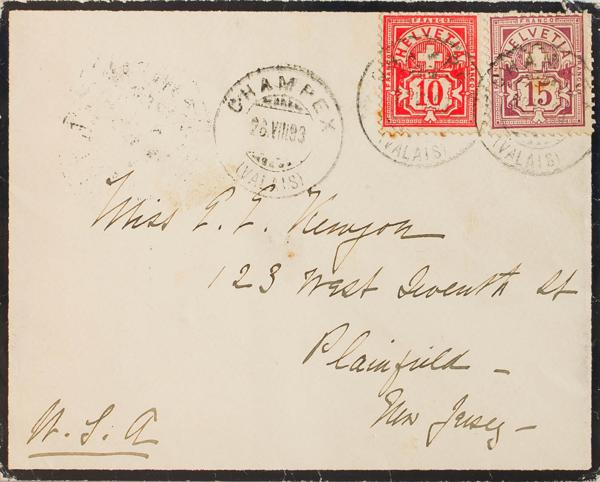 FRANCO FRANCO
HELVETIA HELVETIA
10 15
CHAMPEX
26.VIII.93
(VALAIS) (VALAIS) (VALAIS)
Miss E. E. Kenyon
123 West Seventh St
Plainfield -
New Jersey -
U. S. A